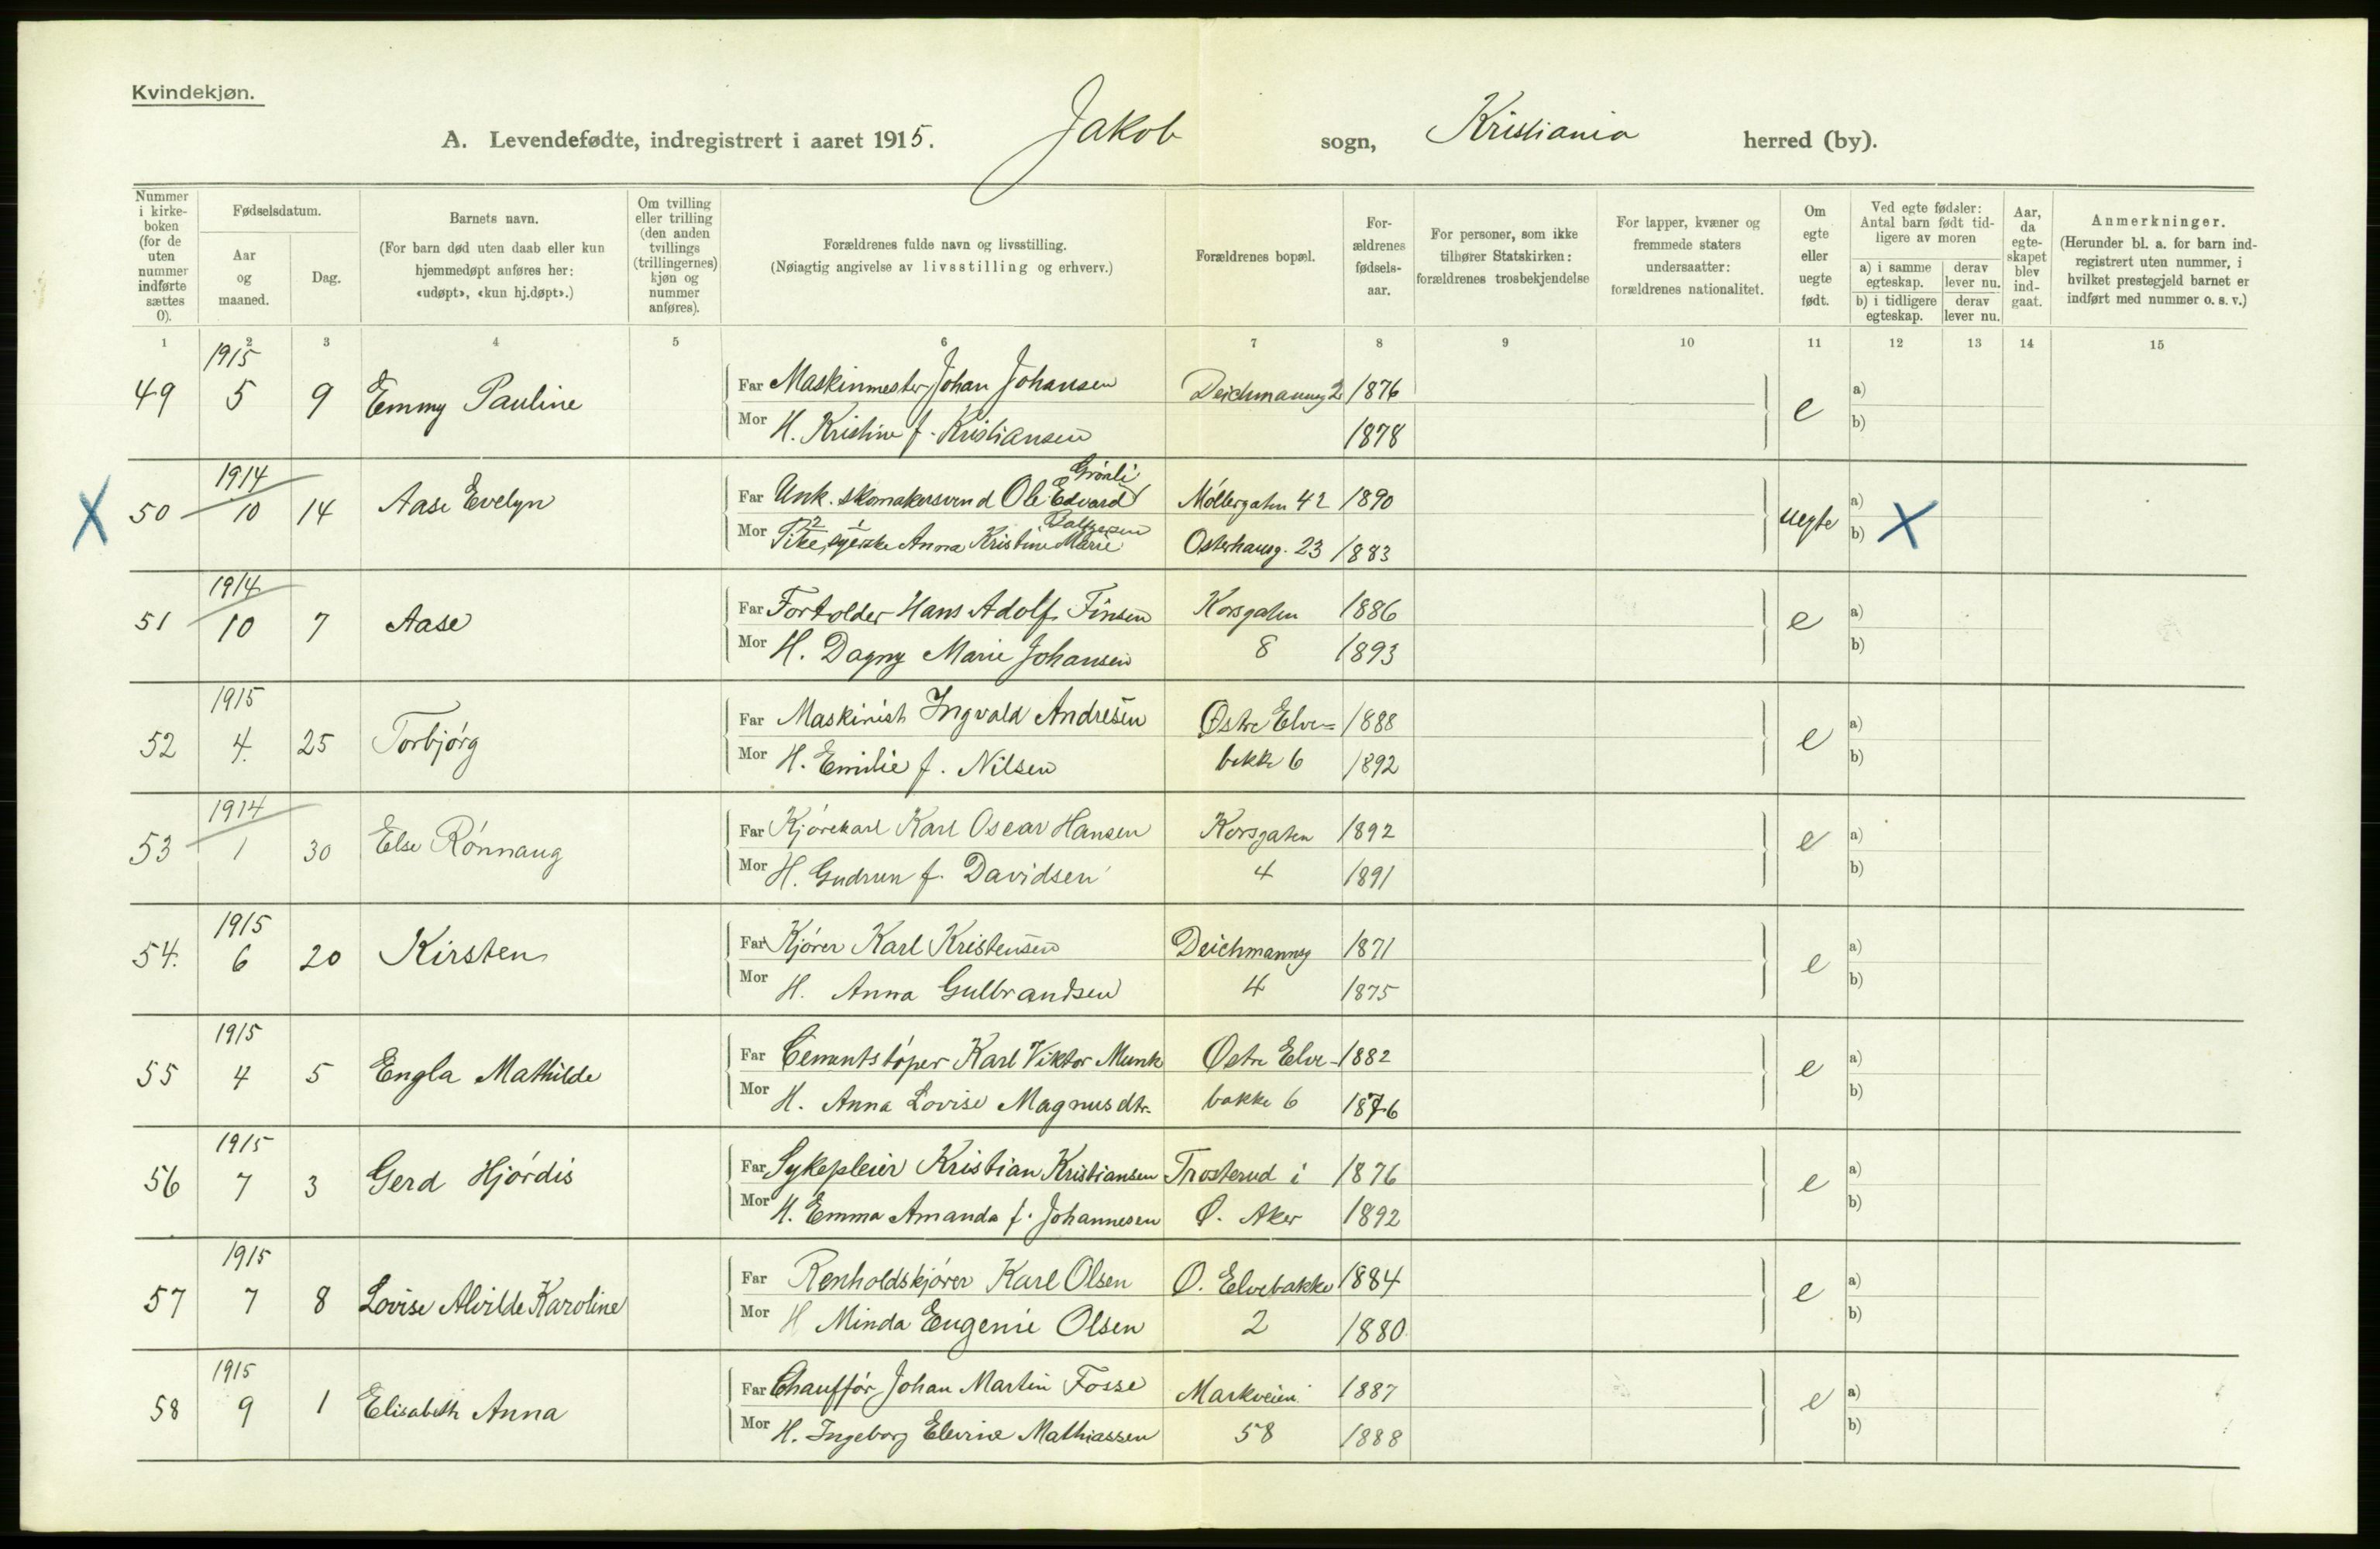 Kvindekjøn.
A. Levendefødte, indregistrert i aaret 1915. Jakob sogn, Kristiania herred (by).
Nummer i kirke-boken (for de uten nummer indførte sættes 0).
Fødselsdatum.
Aar og maaned.
Dag.
Barnets navn.
(For barn død uten daab eller kun hjemmedøpt anføres her: «udøpt», «kun hj.døpt».)
Om tvilling eller trilling (den anden tvillings (trillingernes) kjøn og nummer anføres).
Forældrenes fulde navn og livsstilling.
(Nøiagtig angivelse av livsstilling og erhverv.)
Forældrenes bopæl.
For-ældrenes fødsels-aar.
For personer, som ikke tilhører Statskirken: forældrenes trosbekjendelse
For lapper, kvæner og fremmede staters undersaatter: forældrenes nationalitet.
Om egte eller uegte født.
Ved egte fødsler: Antal barn født tid-ligere av moren
a) i samme egteskap. derav lever nu.
b) i tidligere egteskap. derav lever nu.
Aar, da egte-skapet blev ind-gaat.
Anmerkninger.
(Herunder bl. a. for barn ind-registrert uten nummer, i hvilket prestegjeld barnet er indført med nummer o. s. v.)
1 2 3 4 5 6 7 8 9 10 11 12 13 14 15
1915
49 5 9 Emmy Pauline Far Maskinmester Johan Johansen Deichmannsg 2 1876 e a)
Mor H. Kristine f. Kristiansen 1878 b)
1914 Grönli
X 50 10 14 Aase Evelyn Far Unk. skomakersvend Ole Edvard Møllergaten 42 1890 uegte a)
Mor Pike, syerske Anna Kristine Marie Osterhausg. 23 1883 b) X
1914
51 10 7 Aase Far Fortolder Hans Adolf Finsen Korsgaten 1886 e a)
Mor H. Dagny Marie Johansen 8 1893 b)
1915
52 4. 25 Torbjórg Far Maskinist Ingvald Andresen Østre Elve= 1888 e a)
Mor H. Emilie f. Nilsen bakke 6 1892 b)
1914
53 1 30 Else Rónnaug Far Kjórekarl Karl Oscar Hansen Korsgaten 1892 e a)
Mor H. Gudrun f. Davidsen 4 1891 b)
1915
54. 6 20 Kirsten Far Kjórer Karl Kristensen Deichmannsg 1871 e a)
Mor H. Anna Gulbrandsen 4 1875 b)
1915
55 4 5 Engla Mathilde Far Cementstóper Karl Viktor Munk Østre Elve- 1882 e a)
Mor H. Anna Lovise Magnusdtr. bakke 6 1876 b)
1915
56 7 3 Gerd Hjórdis Far Sykepleier Kristian Kristiansen Trosterud i 1876 e a)
Mor H. Emma Amanda f. Johannesen Ø. Aker 1892 b)
1915
57 7 8 Lovise Alvilde Karoline Far Renholdskjórer Karl Olsen Ø. Elvebakke 1884 e a)
Mor H Minda Eugenie Olsen 2 1880 b)
1915
58 9 1 Elisabeth Anna Far Chauffór Johan Martin Fosse Markveien 1887 e a)
Mor H. Ingeborg Elevine Mathiassen 58 1888 b)